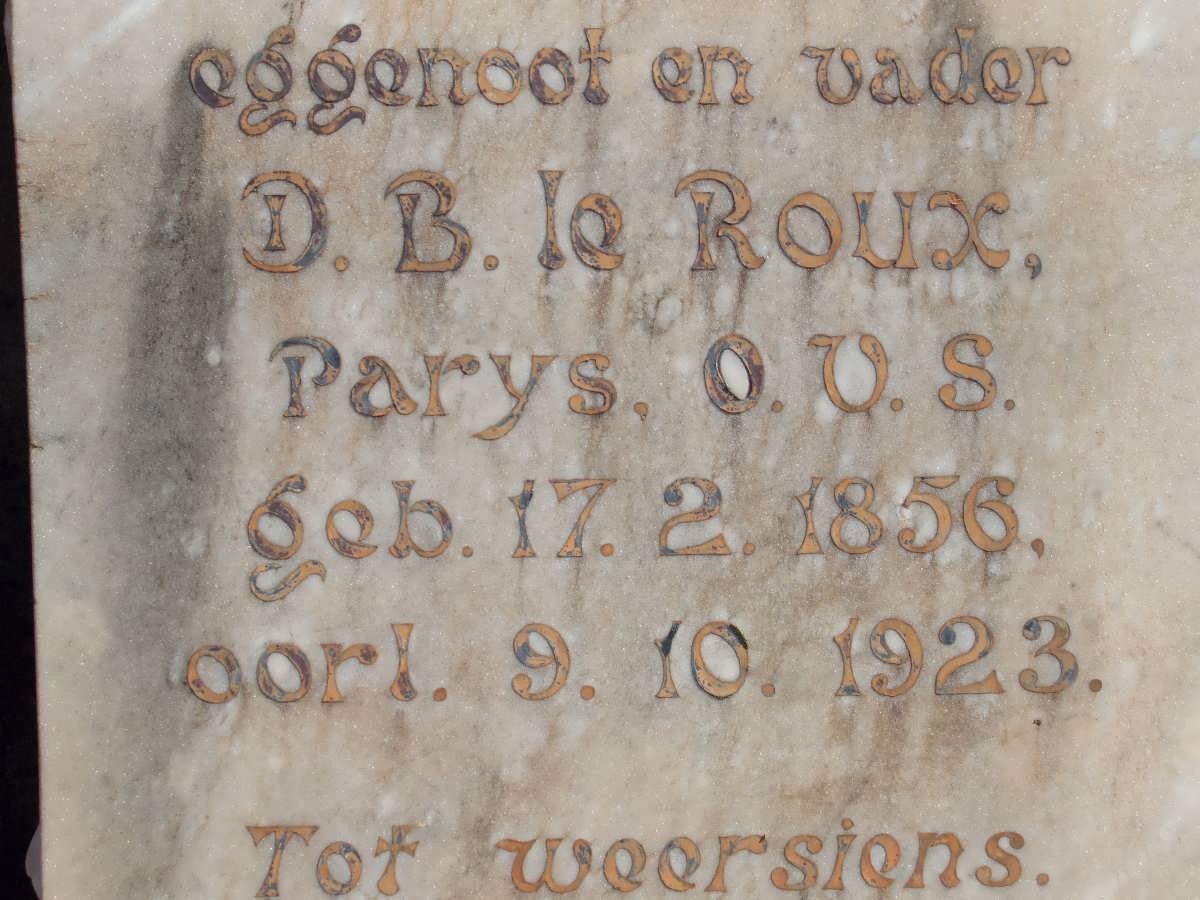 eggenoot en vader
D. B. le Roux,
Parys, O. V. S.
geb. 17. 2. 1856,
oorl. 9. 10. 1923.
Tot weersiens.